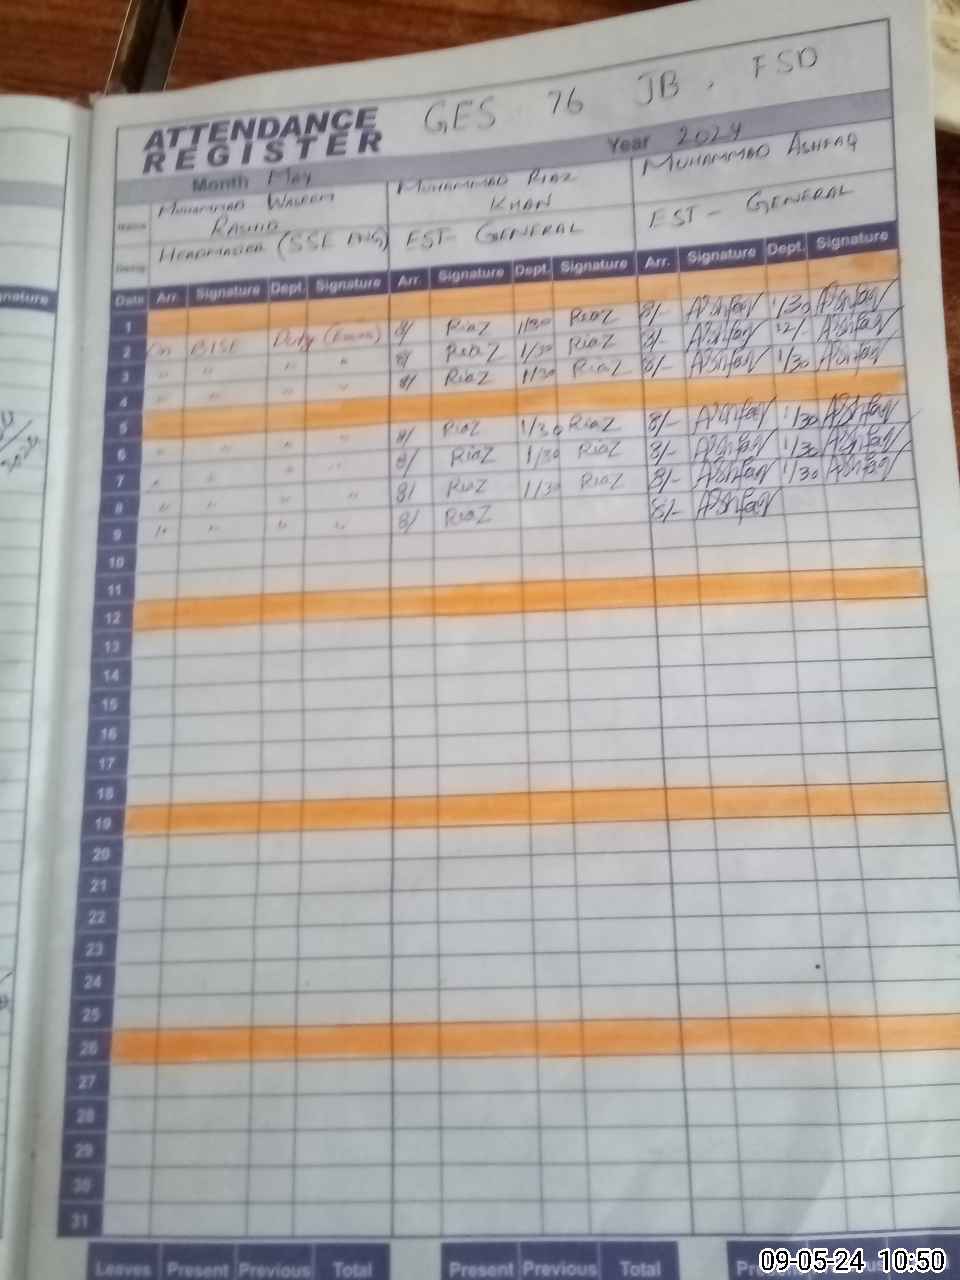 GES 76 JB. FSD
ATTENDANCE
REGISTER
Month May Year 2024
Name MUHAMMAD WASEEM RASHID MUHAMMAD RIAZ KHAN MUHAMMAD ASHFAQ
HEADMASTER (SSE ENG) EST- GENERAL EST- GENERAL
Date Arr. Signature Dept. Signature Arr. Signature Dept. Signature Arr. Signature Dept. Signature
1
2 On BISE Duty (Exam) 8/ Riaz 1/30 Riaz 8/- Ashfaq 1/30 Ashfaq
3 " " " " 8/ Riaz 1/30 Riaz 8/- Ashfaq 12/- Ashfaq
4 " " " " 8/ Riaz 1/30 Riaz 8/- Ashfaq 1/30 Ashfaq
5
6 " " " " 8/ Riaz 1/30 Riaz 8/- Ashfaq 1/30 Ashfaq
7 " " " " 8/ Riaz 1/30 Riaz 8/- Ashfaq 1/30 Ashfaq
8 " " " " 8/ Riaz 1/30 Riaz 8/- Ashfaq 1/30 Ashfaq
9 " " " " 8/ Riaz 8/- Ashfaq
10
11
12
13
14
15
16
17
18
19
20
21
22
23
24
25
26
27
28
29
30
31
Leaves Present Previous Total Present Previous Total
09-05-24 10:50